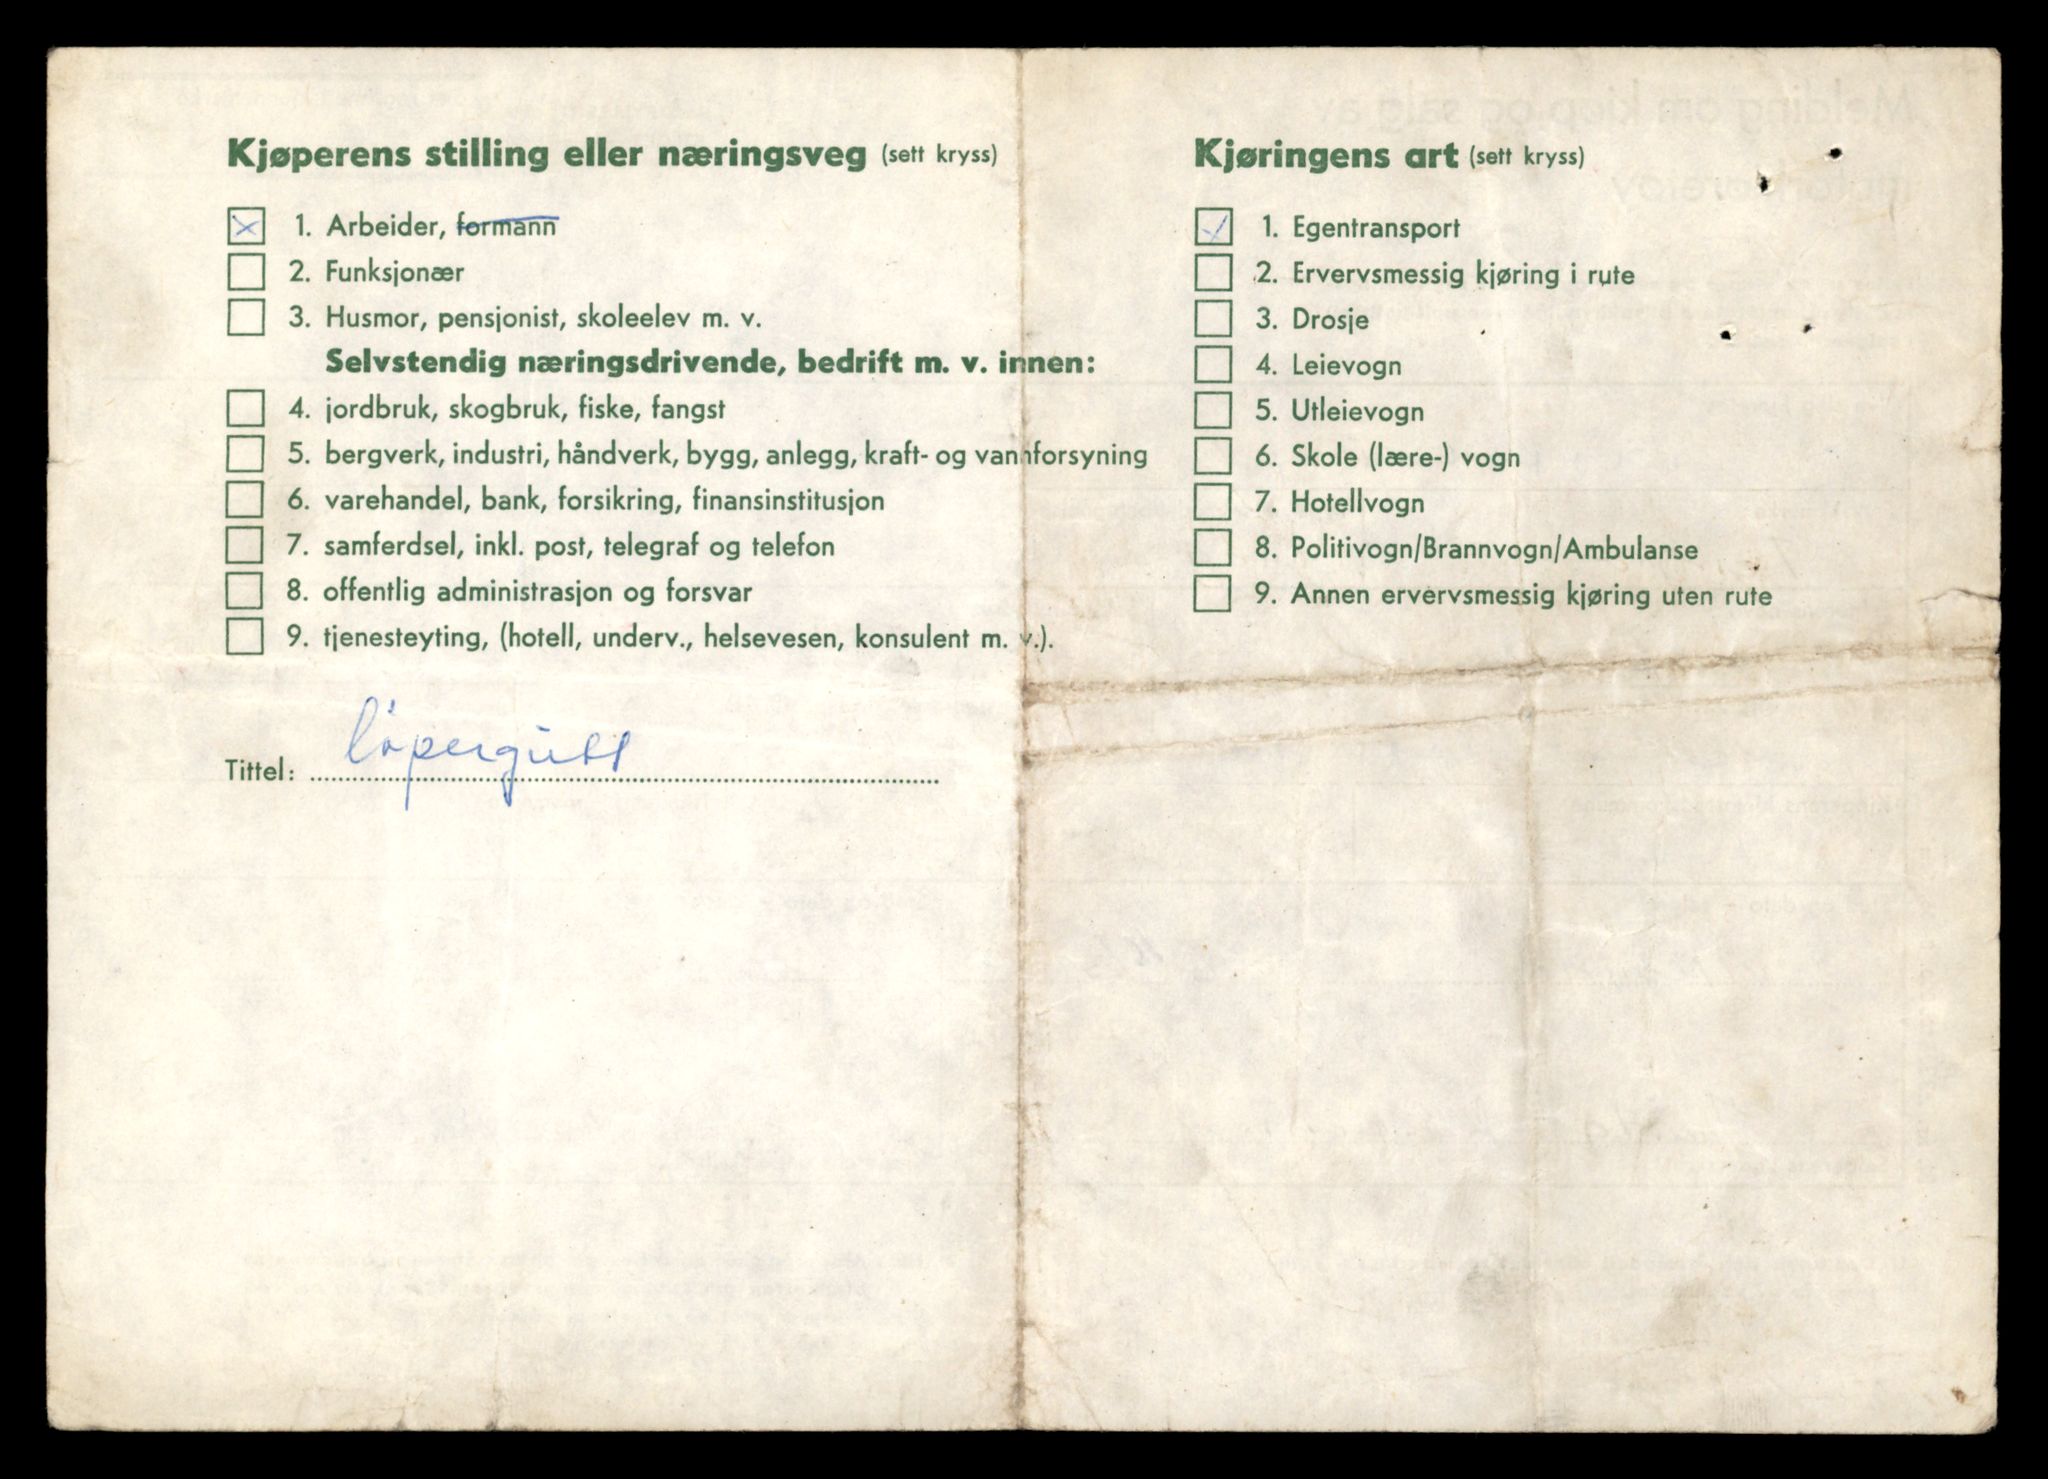 Kjøperens stilling eller næringsveg (sett kryss)
1. Arbeider, formann
2. Funksjonær
3. Husmor, pensjonist, skoleelev m. v.
Selvstendig næringsdrivende, bedrift m. v. innen:
4. jordbruk, skogbruk, fiske, fangst
5. bergverk, industri, håndverk, bygg, anlegg, kraft- og vannforsyning
6. varehandel, bank, forsikring, finansinstitusjon
7. samferdsel, inkl. post, telegraf og telefon
8. offentlig administrasjon og forsvar
9. tjenesteyting, (hotell, underv., helsevesen, konsulent m. v.).
Tittel: løpergutt
Kjøringens art (sett kryss)
1. Egentransport
2. Ervervsmessig kjøring i rute
3. Drosje
4. Leievogn
5. Utleievogn
6. Skole (lære-) vogn
7. Hotellvogn
8. Politivogn/Brannvogn/Ambulanse
9. Annen ervervsmessig kjøring uten rute